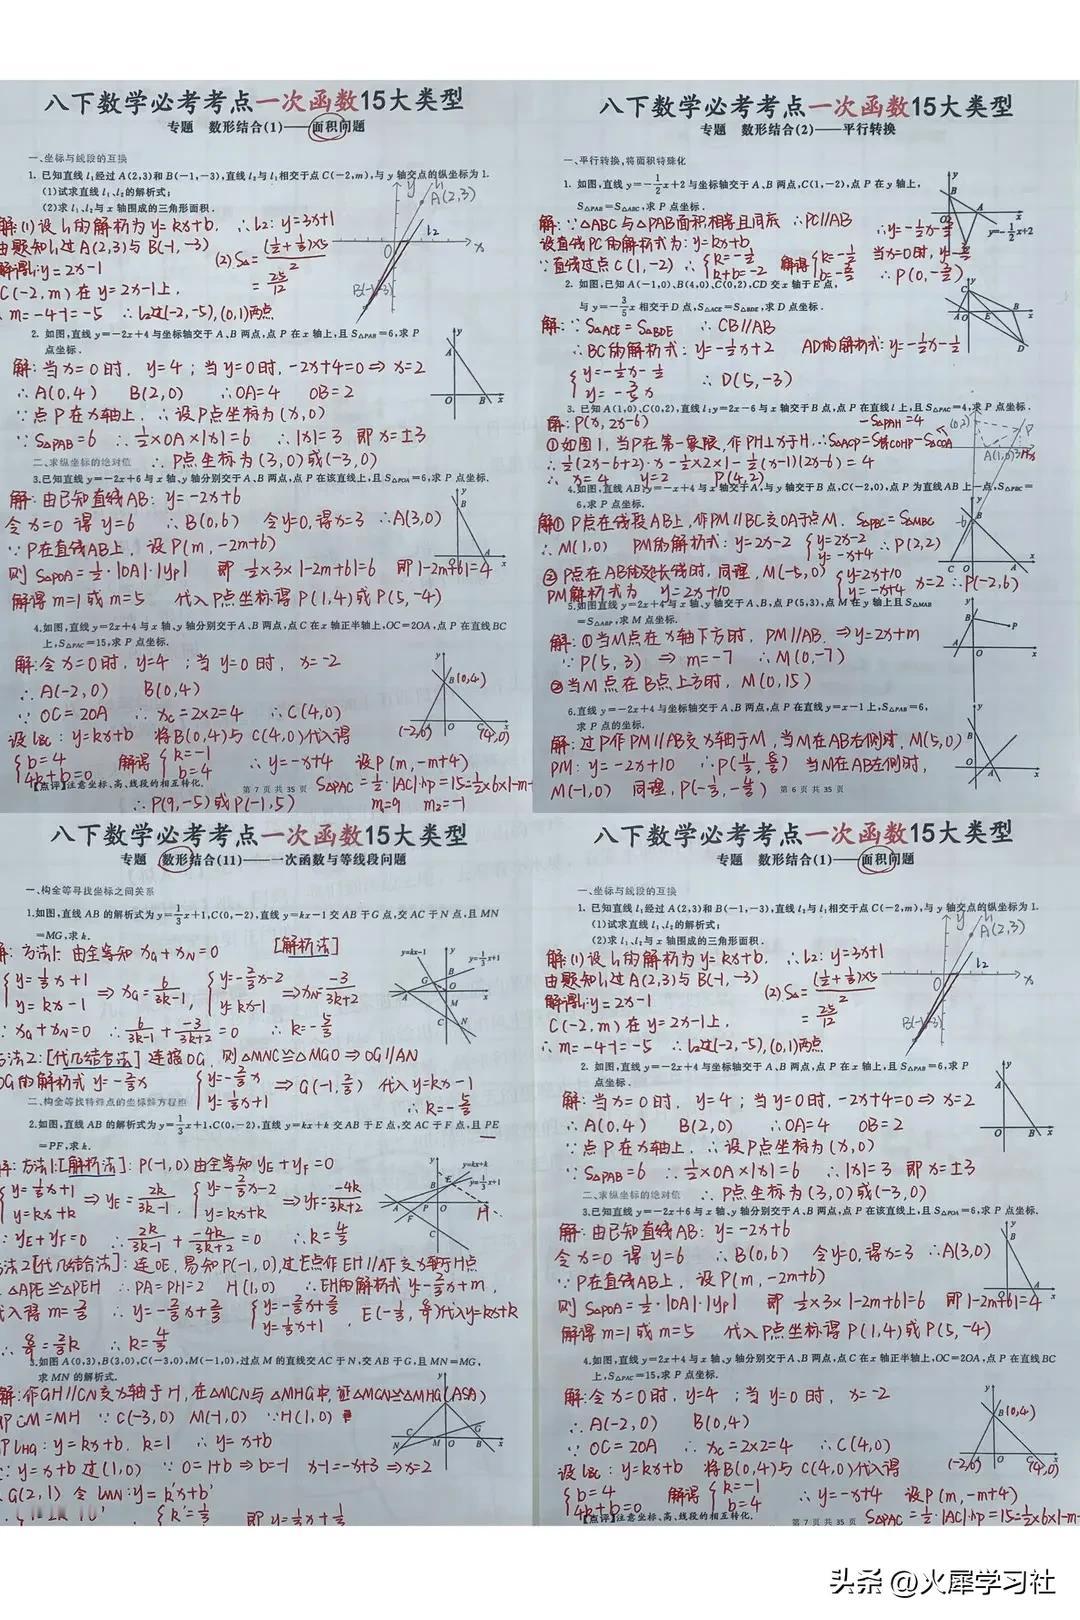 八下数学必考考点一次函数15大类型
专题 数形结合(1)——面积问题
一、坐标与线段的互换
1. 已知直线 l₁经过 A(2,3)和 B(-1,-3),直线 l₂与 l₁相交于点 C(-2,m),与 y 轴交点的纵坐标为 1.
(1)试求直线 l₁、l₂的解析式;
(2)求 l₁、l₂与 x 轴围成的三角形面积.
解:(1)设l₁的解析为y=kx+b. ∴l₂: y=3x+1
由题知l₁过A(2,3)与B(-1,-3) (2)S△= (½+⅓)×5/2
解得l₁:y=2x-1 = 25/12
C(-2,m)在y=2x-1上.
∴m=-4-1=-5 ∴l₂过(-2,-5),(0,1)两点
A(2,3)
l₂
B(-1,-3)
2. 如图,直线 y=-2x+4 与坐标轴交于 A、B 两点,点 P 在 x 轴上,且 S△PAB=6,求 P
点坐标.
解:当x=0时, y=4;当y=0时,-2x+4=0⇒x=2
∴A(0,4) B(2,0) ∴OA=4 OB=2
∵点P在x轴上. ∴设P点坐标为(x,0)
∵S△PAB=6 ∴½×OA×|x|=6 ∴|x|=3 即x=±3
二、求纵坐标的绝对值 ∴P点坐标为(3,0)或(-3,0)
3.已知直线 y=-2x+6 与 x 轴、y 轴分别交于 A、B 两点,点 P 在该直线上,且 S△POA=6,求 P 点坐标.
解:由已知直线AB: y=-2x+6
令x=0 得y=6 ∴B(0,6) 令y=0,得x=3 ∴A(3,0)
∵P在直线AB上, 设P(m,-2m+6)
则S△POA=½·|OA|·|yp| 即½×3×|-2m+6|=6 即|-2m+6|=4
解得m=1或m=5 代入P点坐标得P(1,4)或P(5,-4)
4.如图,直线 y=2x+4 与 x 轴、y 轴分别交于 A、B 两点,点 C 在 x 轴正半轴上,OC=2OA,点 P 在直线 BC
上,S△PAC=15,求 P 点坐标.
解:令x=0时,y=4;当y=0时, x=-2
∴A(-2,0) B(0,4)
∵OC=2OA ∴xc=2×2=4 ∴C(4,0)
设lBC: y=kx+b 将B(0,4)与C(4,0)代入得
{b=4 4k+b=0 解得{k=-1 b=4 ∴y=-x+4 设P(m,-m+4)
B(0,4)
(-2,0) (4,0)
S△PAC=½·|AC|·hp=15=½×6×|-m-
【点评】注意坐标、高、线段的相互转化. 第 7 页 共 35 页
∴P(9,-5)或P(-1,5) m=9 m₂=-1
八下数学必考考点一次函数15大类型
专题 数形结合(2)——平行转换
一、平行转换,将面积特殊化
1. 如图,直线 y=-½x+2 与坐标轴交于 A、B 两点,C(1,-2),点 P 在 y 轴上,
S△PAB=S△ABC,求 P 点坐标.
解:∵△ABC与△PAB面积相等且同底 ∴PC∥AB ∴y=-½x-3/2
设直线PC的解析式为:y=kx+b 当x=0时,y=-3/2
∵直线过点C(1,-2) ∴{k=-½ k+b=-2 解得{k=-½ b=-3/2 ∴P(0,-3/2)
y=-½x+2
2. 如图,已知 A(-1,0),B(4,0),C(0,2),CD 交 x 轴于 E 点,
与 y=-3/5x 相交于 D 点,S△ACE=S△BDE,求 D 点坐标.
解:∵S△ACE=S△BDE ∴CB∥AB
∴BC的解析式:y=-½x+2 AD的解析式:y=-½x-½
{y=-½x-½ y=-3/5x ∴D(5,-3)
3. 已知 A(1,0)、C(0,2),直线 l:y=2x-6 与 x 轴交于 B 点,点 P 在直线 l 上,且 S△PAC=4,求 P 点坐标.
解:P(x,2x-6) -S△PAH=4
①如图1,当P在第一象限,作PH⊥x于H,∴S△ACP=S梯COHP-S△COA
∴½(2x-6+2)·x-½×2×1-½(x-1)(2x-6)=4
∴x=4 y=2 P(4,2)
4.如图,直线 AB:y=-x+4 与 x 轴交于 A,与 y 轴交于 B 点,C(-2,0),点 P 为直线 AB 上一点,S△PBC=
6,求 P 点坐标.
解①P点在线段AB上,作PM∥BC交OA于点M. S△PBC=S△MBC
∴M(1,0) PM的解析式:y=2x-2 {y=2x-2 y=-x+4 ∴P(2,2)
②P点在AB的延长线时,同理,M(-5,0) {y=2x+10 y=-x+4 x=2∴P(-2,6)
PM解析式为 y=2x+10
5.如图直线 y=2x+4 与 x 轴、y 轴交于 A、B,点 P(5,3),点 M 在 y 轴上且 S△MAB
=S△ABP,求 M 点坐标.
解:①当M点在x轴下方时, PM∥AB. ⇒y=2x+m
∵P(5,3) ⇒m=-7 ∴M(0,-7)
②当M点在B点上方时, M(0,15)
6.直线 y=-2x+4 与坐标轴交于 A、B 两点,点 P 在直线 y=x-1 上,S△PAB=6,
求 P 点的坐标.
解:过P作PM∥AB交x轴于M,当M在AB右侧时, M(5,0)
PM: y=-2x+10 ∴P(11/3,8/3) 当M在AB左侧时,
M(-1,0) 同理,P(-⅓,-4/3) 第 6 页 共 35 页
八下数学必考考点一次函数15大类型
专题 数形结合(11)——一次函数与等线段问题
一、构全等寻找坐标之间关系
1.如图,直线 AB 的解析式为 y=⅓x+1,C(0,-2),直线 y=kx-1 交 AB 于 G 点,交 AC 于 N 点,且 MN
=MG,求 k.
解:方法1: 由全等知 xG+xN=0 [解析法]
{y=⅓x+1 y=kx-1 ⇒xG=6/(3k-1), {y=-⅔x-2 y=kx-1 ⇒xN=-3/(3k+2)
∵xG+xN=0 ∴6/(3k-1)+-3/(3k+2)=0 ∴k=-5/3
方法2:[代几结合法]连接OG, 则△MNC≌△MGO⇒OG∥AN
OG的解析式y=-⅔x {y=-⅔x y=⅓x+1 ⇒G(-1,⅔) 代入y=kx-1
∴k=-5/3
y=kx-1
y=⅓x+1
二、构全等找特殊点的坐标解方程组
2.如图,直线 AB 的解析式为 y=⅓x+1,C(0,-2),直线 y=kx+k 交 AB 于 E 点,交 AC 于 F 点,且 PE
=PF,求 k.
解:方法1:[解析法]: P(-1,0)由全等知yE+yF=0
{y=⅓x+1 y=kx+k ⇒yE=2k/(3k-1), {y=-⅔x-2 y=kx+k ⇒yF=-4k/(3k+2)
∵yE+yF=0 ∴2k/(3k-1)+-4k/(3k+2)=0 ∴k=4/3
方法2[代几结合法]:连OE,易知P(-1,0),过E点作EH∥AF交x轴于H点
∴△APE≌△PEH ∴PA=PH=2 H(1,0) ∴EH的解析式y=-⅔x+m,
代入得m=⅔ ∴y=-⅔x+⅔ {y=-⅔x+⅔ y=⅓x+1, E(-⅓,8/9)代入y=kx+k
∴8/9=⅔k ∴k=4/3
y=kx+k
y=⅓x+1
3.如图 A(0,3),B(3,0),C(-3,0),M(-1,0),过点 M 的直线交 AC 于 N,交 AB 于 G,且 MN=MG,
求 MN 的解析式.
解:作GH∥CN交x轴于H,在△MCN与△MHG中,证△MCN≌△MHG(ASA)
即CM=MH ∵C(-3,0) M(-1,0) ∵H(1,0)
即lHG: y=kx+b, k=1 ∴y=x+b
∵y=x+b过(1,0) ∵0=1+b⇒b=-1 x-1=-x+3⇒x=2
∴G(2,1) 令lMN:y=k'x+b'
{k'=⅓ 即y=⅓x+⅓
八下数学必考考点一次函数15大类型
专题 数形结合(1)——面积问题
一、坐标与线段的互换
1. 已知直线 l₁经过 A(2,3)和 B(-1,-3),直线 l₂与 l₁相交于点 C(-2,m),与 y 轴交点的纵坐标为 1.
(1)试求直线 l₁、l₂的解析式;
(2)求 l₁、l₂与 x 轴围成的三角形面积.
解:(1)设l₁的解析为y=kx+b. ∴l₂: y=3x+1
由题知l₁过A(2,3)与B(-1,-3) (2)S△= (½+⅓)×5/2
解得l₁:y=2x-1 = 25/12
C(-2,m)在y=2x-1上.
∴m=-4-1=-5 ∴l₂过(-2,-5),(0,1)两点
A(2,3)
l₂
B(-1,-3)
2. 如图,直线 y=-2x+4 与坐标轴交于 A、B 两点,点 P 在 x 轴上,且 S△PAB=6,求 P
点坐标.
解:当x=0时, y=4;当y=0时,-2x+4=0⇒x=2
∴A(0,4) B(2,0) ∴OA=4 OB=2
∵点P在x轴上. ∴设P点坐标为(x,0)
∵S△PAB=6 ∴½×OA×|x|=6 ∴|x|=3 即x=±3
二、求纵坐标的绝对值 ∴P点坐标为(3,0)或(-3,0)
3.已知直线 y=-2x+6 与 x 轴、y 轴分别交于 A、B 两点,点 P 在该直线上,且 S△POA=6,求 P 点坐标.
解:由已知直线AB: y=-2x+6
令x=0 得y=6 ∴B(0,6) 令y=0,得x=3 ∴A(3,0)
∵P在直线AB上, 设P(m,-2m+6)
则S△POA=½·|OA|·|yp| 即½×3×|-2m+6|=6 即|-2m+6|=4
解得m=1或m=5 代入P点坐标得P(1,4)或P(5,-4)
4.如图,直线 y=2x+4 与 x 轴、y 轴分别交于 A、B 两点,点 C 在 x 轴正半轴上,OC=2OA,点 P 在直线 BC
上,S△PAC=15,求 P 点坐标.
解:令x=0时,y=4;当y=0时, x=-2
∴A(-2,0) B(0,4)
∵OC=2OA ∴xc=2×2=4 ∴C(4,0)
设lBC: y=kx+b 将B(0,4)与C(4,0)代入得
{b=4 4k+b=0 解得{k=-1 b=4 ∴y=-x+4 设P(m,-m+4)
B(0,4)
(-2,0) (4,0)
【点评】注意坐标、高、线段的相互转化. 第 7 页 共 35 页 S△PAC=½·|AC|·hp=15=½×6×|-m-
头条 @火犀学习社